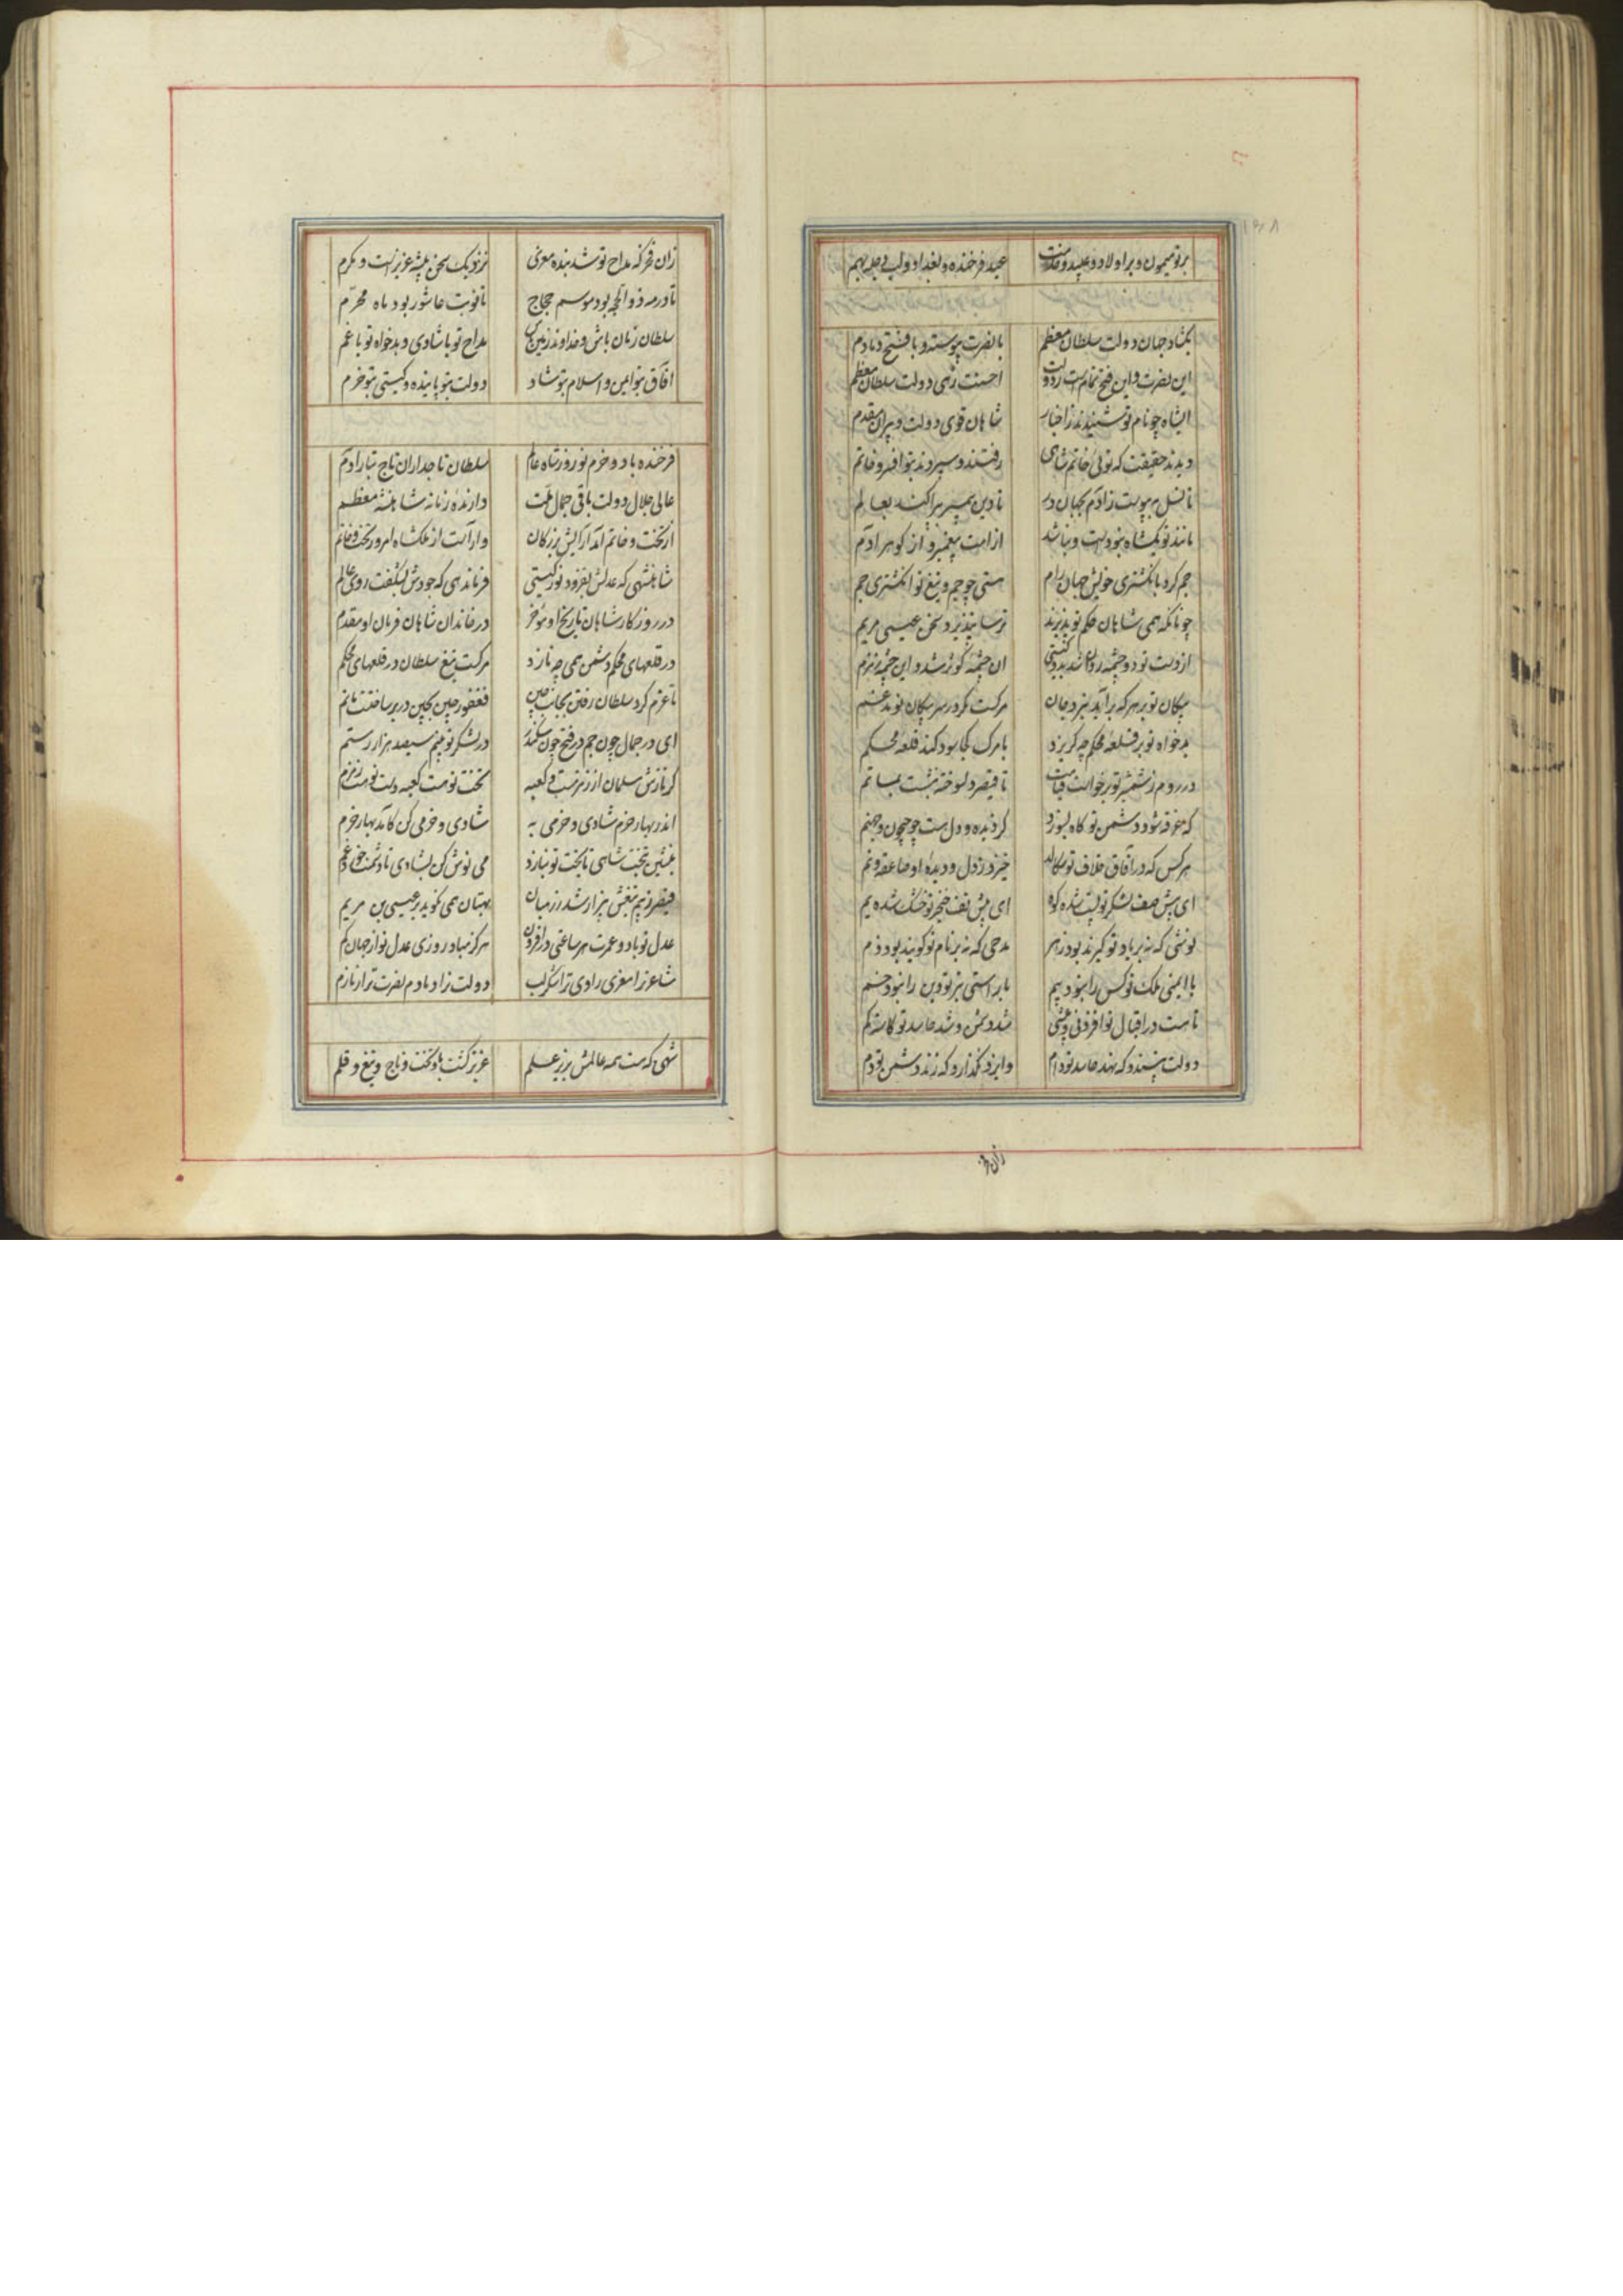 بر تو میمون و بر اولاد و عبید و خدمت عید فرخنده و بغداد و لب دجله بهم
بگشاد جهان دولت سلطان معظم با نصرت پیوسته و با فتح دمادم
این نصرت و این فتح تمام است ز دولت احسنت زهی دولت سلطان معظم
ایشاه چو نام تو شنیدند ز اخبار شاهان قوی دولت و پیران مقدم
دیدند حقیقت که توئی خاتم شاهی رفتند و سپردند بتو افسر و خاتم
تا نسل بپیوست ز آدم بجهان در تا دین پیمبر پراکند بعالم
مانند تو یکشاه نبودست و نباشد از امت پیغمبر و از گوهر آدم
جم کرد بانگشتری خویش جهان رام هستی چو جم و تیغ تو انگشتری جم
چونانکه همی شاهان حکم تو پذیرند ترسا نپذیرد سخن عیسی مریم
از دست تو دو چشمه روان شد بدو گیتی آن چشمه کوثر شد و این چشمه زمزم
پیکان تو بر هر که برآید ببرد جان مرگست مگر در سر پیکان تو مدغم
بدخواه تو بر قلعه محکم چه گریزد با مرگ کجا سود کند قلعه محکم
در روم ز شمشیر تو برخواست قیامت تا قیصر دلسوخته بنشست بماتم
گه غرقه شود دشمن تو گاه بسوزد گر دیده و دل هست چو جیحون و جهنم
هر کس که در آفاق خلاف تو سگالد خیزد ز دل و دیده او صاعقه و نم
ای پیش صف لشکر تو پست شده کوه ای پیش تف خنجر تو خشک شده یم
نوشی که نه بر یاد تو گیرند بود زهر مدحی که نه بر نام تو گویند بود ذم
با ایمنی ملک تو کس را نبود بیم با راستی تیر تو دین را نبود خم
تا هست در اقبال تو افزونی و بیشی شد دشمن و شد حاسد تو کاسته و کم
دولت نپسندد که نهد حاسد تو دام وایزد نگذارد که زند دشمن تو دم
زان فخر
زان فخر که مداح تو شد بنده معزی نزدیک سخن پیشه عزیز است و مکرم
تا در مه ذوالحجه بود موسم حجاج تا نوبت عاشور بود ماه محرم
سلطان زمان باش و خداوند زمین باش مداح تو با شادی و بدخواه تو با غم
آفاق بتو ایمن و اسلام بتو شاد دولت بتو پاینده و گیتی بتو خرم
فرخنده باد و خرم نوروز شاه عالم سلطان تاجداران تاج تبار آدم
عالی جلال دولت باقی جمال ملت دارنده زمانه شاهنشه معظم
از تخت و خاتم آمد آرایش بزرگان وآراست از ملکشاه امروز تخت و خاتم
شاهنشهی که عدلش بفزود نور گیتی فرماندهی که جودش بشکفت روی عالم
در روزگار شاهان تاریخ او مؤخر در خاندان شاهان فرمان او مقدم
در قلعهای محکم دشمن همی چه نازد مرگست تیغ سلطان در قلعهای محکم
تا عزم کرد سلطان رفتن بجانب چین فغفور چین بچین در بر ساختست ماتم
ای در جمال چون جم در فتح چون سکندر در لشکر تو بینم سیصد هزار رستم
گر نازش مسلمان از زمزمست و کعبه تخت تو هست کعبه دست تو هست زمزم
اندر بهار خرم شادی و خرمی به شادی و خرمی کن کآمد بهار خرم
بنشین بتخت شاهی تا بخت تو بنازد می نوش کن بشادی تا دشمنت خورد غم
قیصر ز بیم تیغش بیزار شد ز رهبان بهتان همی نگوید بر عیسی بن مریم
عدل تو باد و عمرت هر ساعتی در افزون هرگز مباد روزی عدل تو از جهان کم
شاعر ترا معزی راوی ترا شکر لب دولت ترا دمادم نصرت ترا زمازم
شهی که هست همه عالمش بزیر علم عزیز گشت باو تخت و تاج و تیغ و قلم